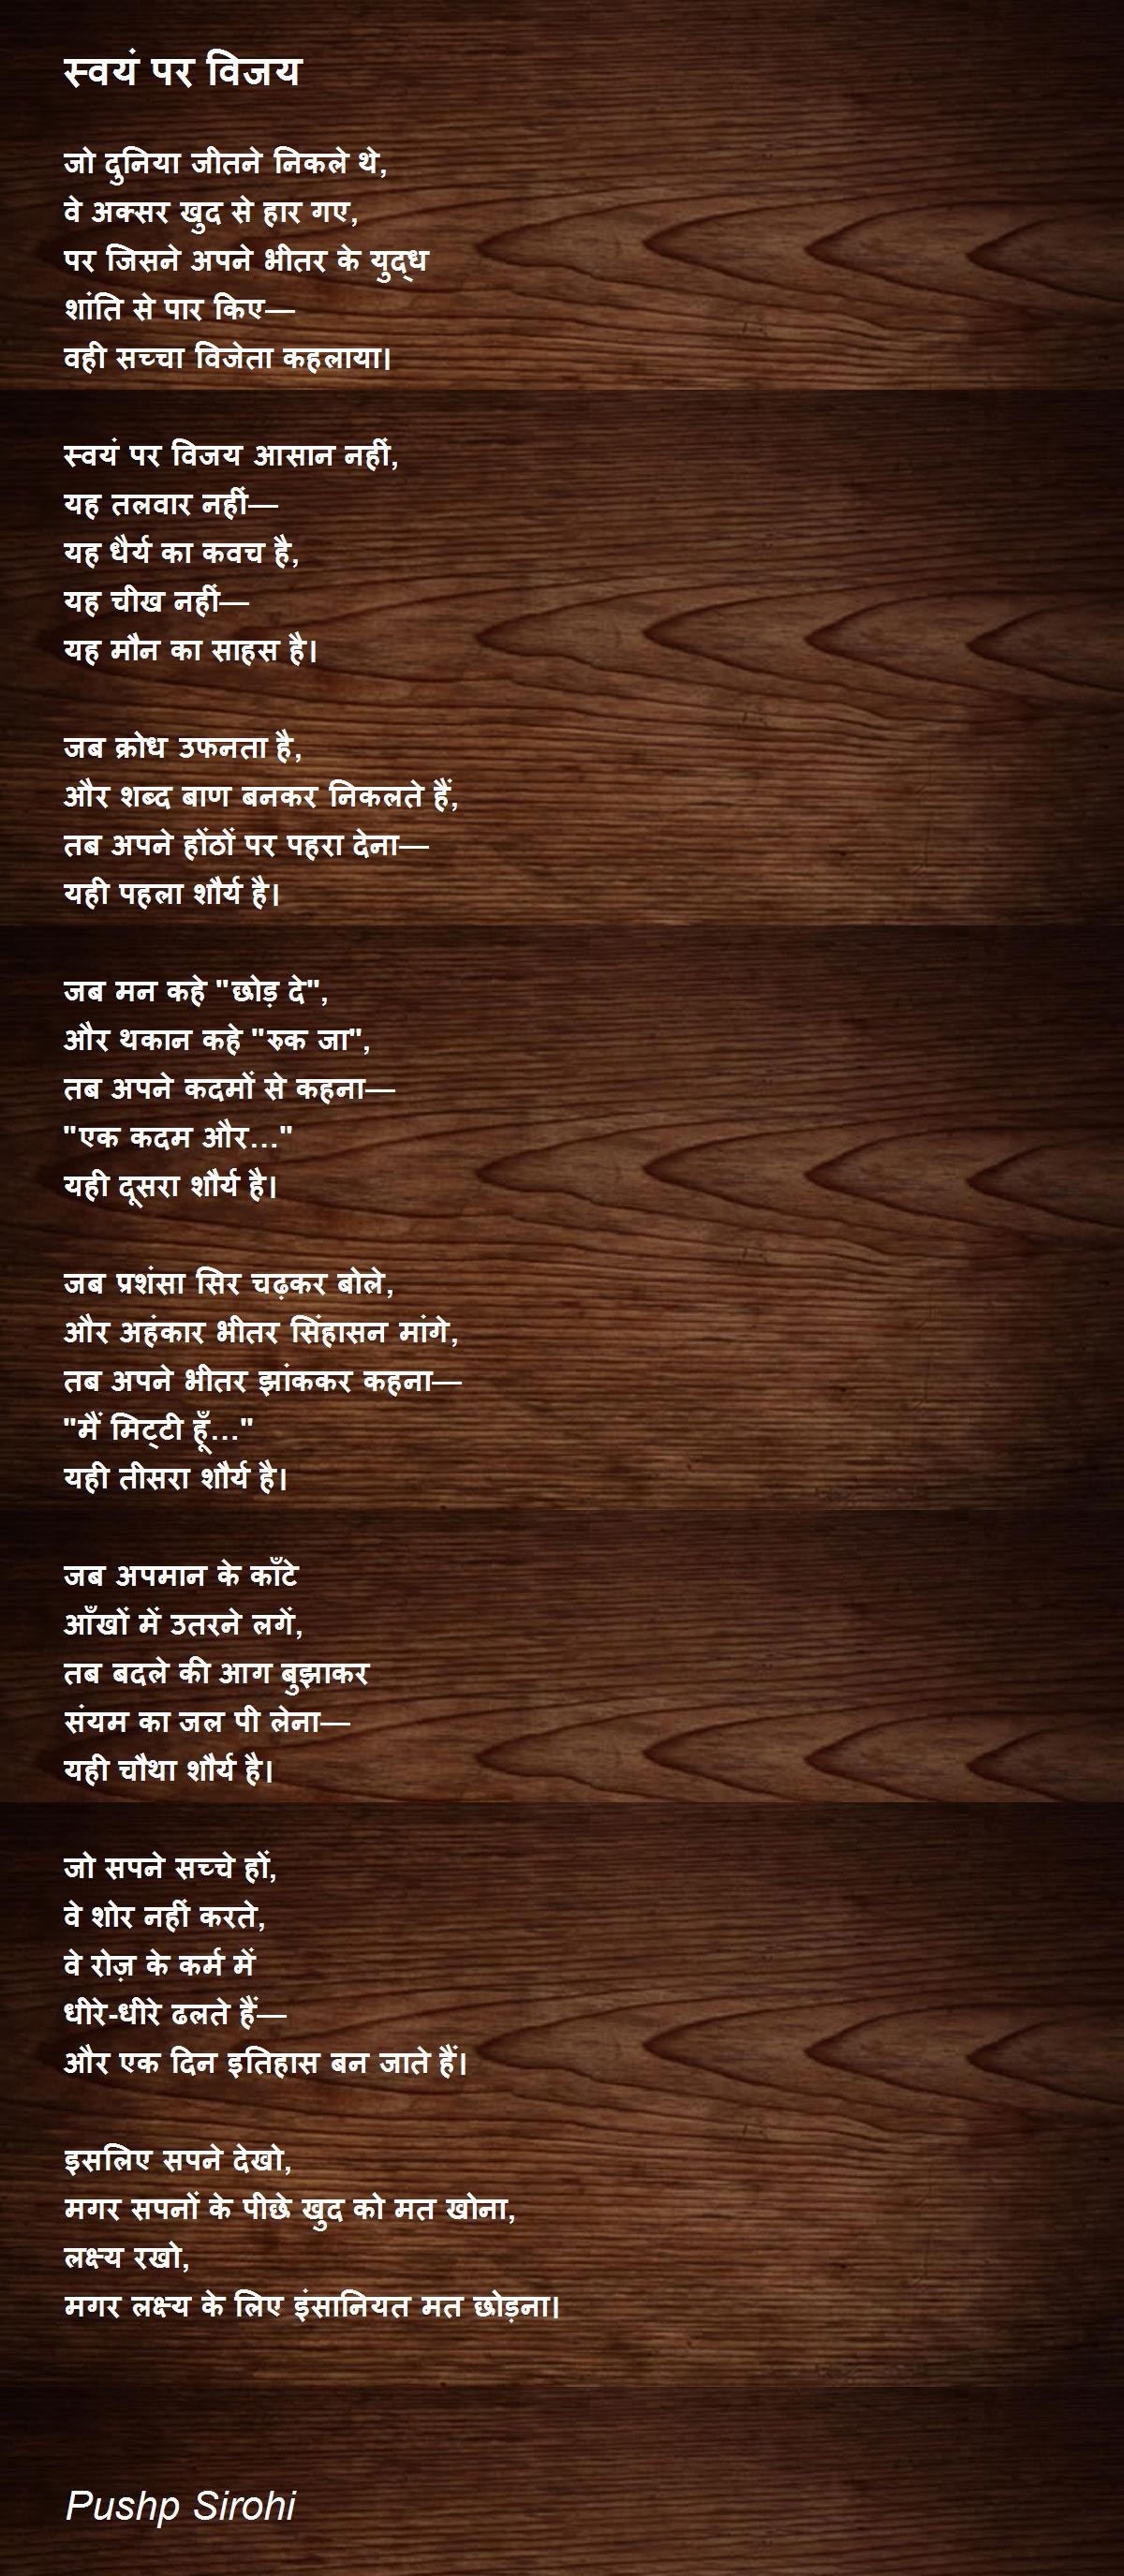 स्वयं पर विजय
जो दुनिया जीतने निकले थे,
वे अक्सर खुद से हार गए,
पर जिसने अपने भीतर के युद्ध
शांति से पार किए—
वही सच्चा विजेता कहलाया।
स्वयं पर विजय आसान नहीं,
यह तलवार नहीं—
यह धैर्य का कवच है,
यह चीख नहीं—
यह मौन का साहस है।
जब क्रोध उफनता है,
और शब्द बाण बनकर निकलते हैं,
तब अपने होंठों पर पहरा देना—
यही पहला शौर्य है।
जब मन कहे "छोड़ दे",
और थकान कहे "रुक जा",
तब अपने कदमों से कहना—
"एक कदम और..."
यही दूसरा शौर्य है।
जब प्रशंसा सिर चढ़कर बोले,
और अहंकार भीतर सिंहासन मांगे,
तब अपने भीतर झांककर कहना—
"मैं मिट्टी हूँ..."
यही तीसरा शौर्य है।
जब अपमान के काँटे
आँखों में उतरने लगें,
तब बदले की आग बुझाकर
संयम का जल पी लेना—
यही चौथा शौर्य है।
जो सपने सच्चे हों,
वे शोर नहीं करते,
वे रोज़ के कर्म में
धीरे-धीरे ढलते हैं—
और एक दिन इतिहास बन जाते हैं।
इसलिए सपने देखो,
मगर सपनों के पीछे खुद को मत खोना,
लक्ष्य रखो,
मगर लक्ष्य के लिए इंसानियत मत छोड़ना।
Pushp Sirohi